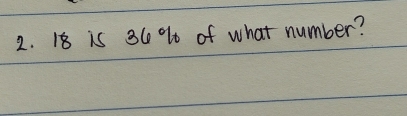 2. 18 is 36% of what number?